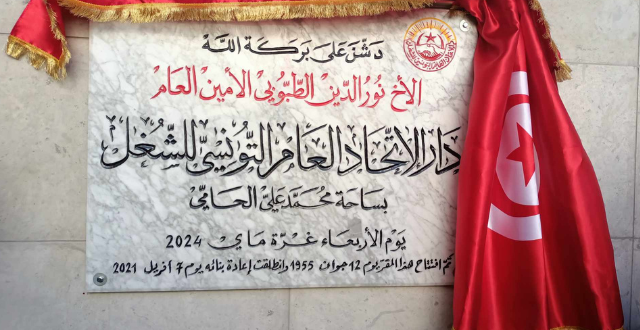 دشّن على بركة الله
الأخ نور الدين الطبّوبي الأمين العام
دار الاتّحاد العام التّونسي للشّغل
بساحة محمّد علي الحامّي
يوم الأربعاء غرّة ماي 2024
تمّ افتتاح هذا المقرّ يوم 12 جوان 1955 وانطلقت إعادة بنائه يوم 7 أفريل 2021